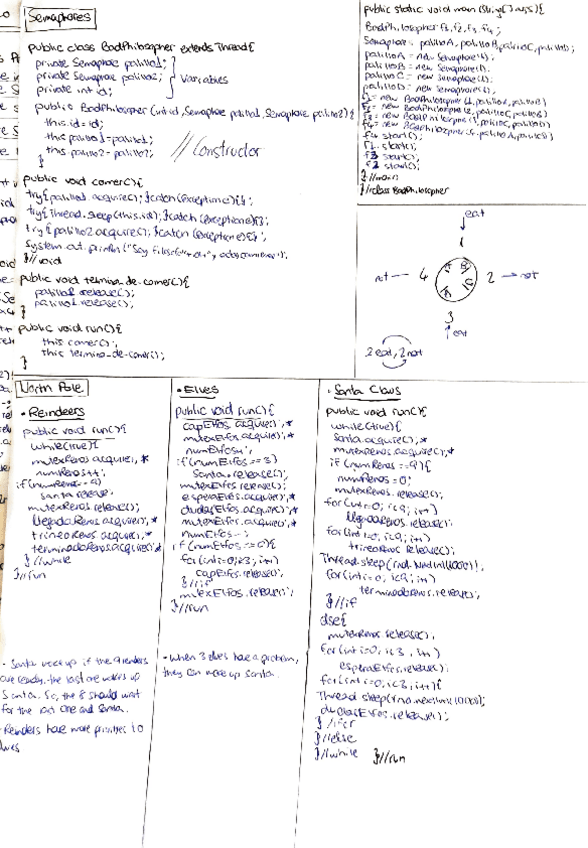 Semaphores
public class BadPhilosopher extends Thread{
private Semaphore palillo1;
private Semaphore palillo2;
private int id;
Variables
public BadPhilosopher (int id, Semaphore palillo1, Semaphore palillo2){
this.id = id;
this.palillo1=palillo1;
this.palillo2=palillo2;
}
//Constructor
public void comer(){
try{palillo1.acquire(); }catch(Exception e){};
try{Thread.sleep(this.id);}catch(Exception e){};
try{palillo2.acquire(); }catch(Exception e){};
System.out.println("Soy Filosofo"
}//void
public void termina_de_comer(){
palillo1.release();
palillo2.release();
}
public void run(){
this.comer();
this.termina_de_comer();
}
public static void main (String[] args){
BadPhilosopher f1, f2, f3, f4;
Semaphore palilloA, palilloB, palilloC, palilloD;
palilloA = new Semaphore(1);
palilloB = new Semaphore(1);
palilloC = new Semaphore(1);
palilloD = new Semaphore(1);
f1 = new BadPhilosopher(1, palilloA, palilloB)
f2 = new BadPhilosopher(2, palilloC, palilloB)
f3 = new BadPhilosopher(
f4 = new BadPhilosopher(4, palilloA,
f4.start();
f1.start();
f3.start();
f2.start();
}//main
}//class BadPhilosopher
eat
1
not 4 2 not
3
eat
2 eat, 2 not
North Pole
• Reindeers
public void run(){
while(true){
mutexRenos.acquire; *
numRenos++;
if(numRenos=9)
santa.release
mutexRenos.release();
llegadaRenos.acquire(); *
trineoRenos.acquire(); *
terminadoRenos.acquire(); *
}//while
}//run
• Santa woke up if the 9 reindeers
are ready. the last one wakes up
Santa. So, the 8 should wait
for the last one and Santa.
- Reindeers have more priorities to
elves
• Elves
public void run(){
capElfos.acquire(); *
mutexElfos.acquire(); *
numElfos++;
if(numElfos==3)
Santa.release();
mutexElfos.release();
esperaElfos.acquire(); *
dudasElfos.acquire(); *
mutexElfos.acquire(); *
numElfos--;
if (numElfos==0){
for(int i=0; i<3; i++)
capElfos.release();
}//if
mutexElfos.release();
}//run
• When 3 elves have a problem,
they can wake up Santa.
• Santa Claus
public void run(){
while(true){
Santa.acquire(); *
mutexRenos.acquire(); *
if (numRenos==9){
numRenos=0;
mutexRenos.release();
for (int i=0; i<9; i++)
llegadaRenos.release();
for(int i=0; i<9; i++)
trineoRenos.release();
Thread.sleep(rnd.nextInt(1000));
for(int i=0; i<9; i++)
terminadoRenos.release();
}//if
else{
mutexRenos.release();
for(int i=0; i<3; i++)
esperaElfos.release();
for(int i=0; i<3; i++){
Thread.sleep(rnd.nextInt(1000));
dudasElfos.release();
}//for
}//else
}//while }//run